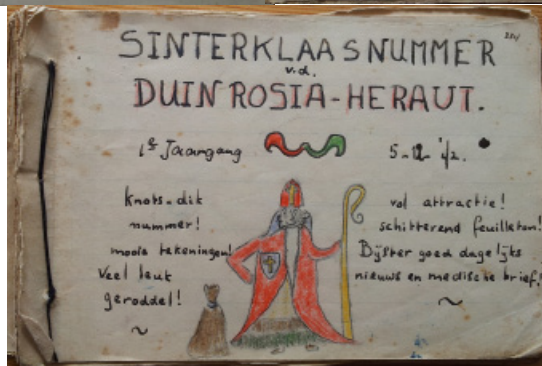 SINTERKLAASNUMMER
v.d.
DUINROSIA-HERAUT.
1e Jaargang
5-12-'42.
Knots-dik
nummer!
mooie tekeningen!
Veel leuk
geroddel!
vol attractie!
schitterend feuilleton!
Bijster goed dagelijks
nieuws en medische brief!